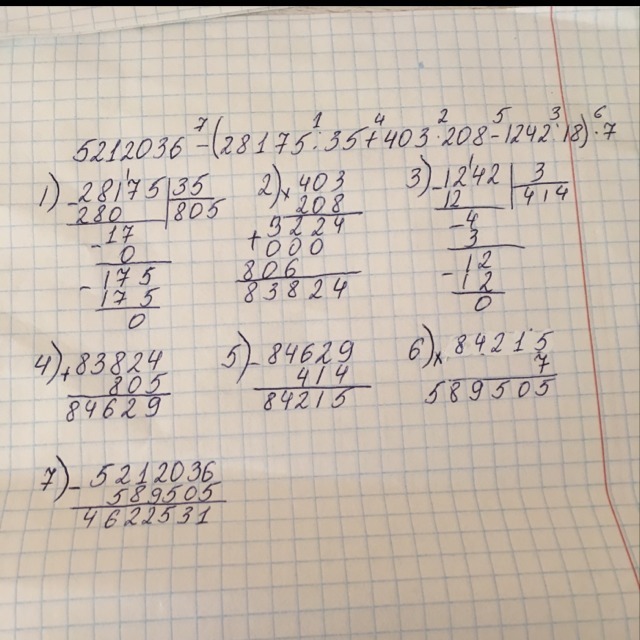 5212036 - (28175 : 35 + 403 · 208 - 1242 : 18) · 7
7 1 4 2 5 3 6
1) - 28175 | 35
280 805
- 17
0
- 175
175
0
2) × 403
208
+ 3224
000
806
83824
3) - 1242 | 3
12 414
- 4
3
- 12
12
0
4) + 83824
805
84629
5) - 84629
414
84215
6) × 84215
7
589505
7) - 5212036
589505
4622531